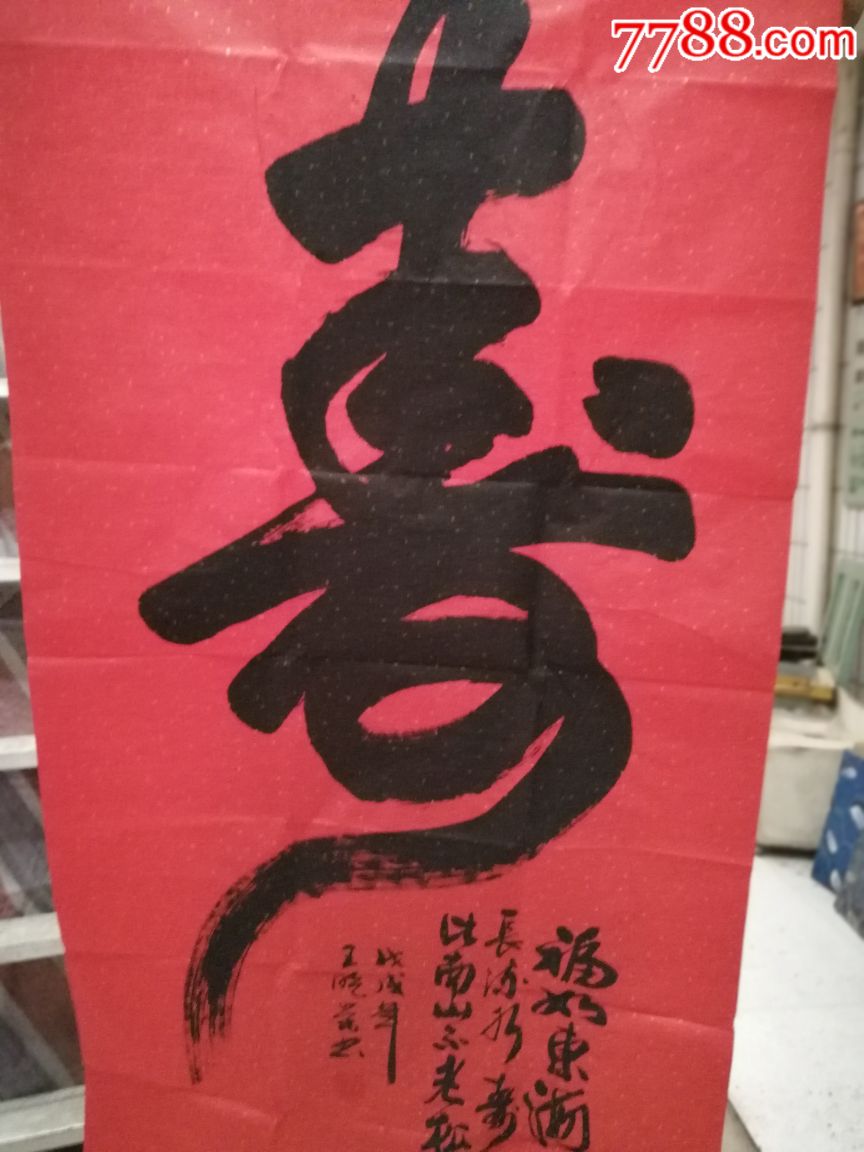 7788.com
寿
福如东海
長流水寿
比南山不老松
戊戌年
王晓